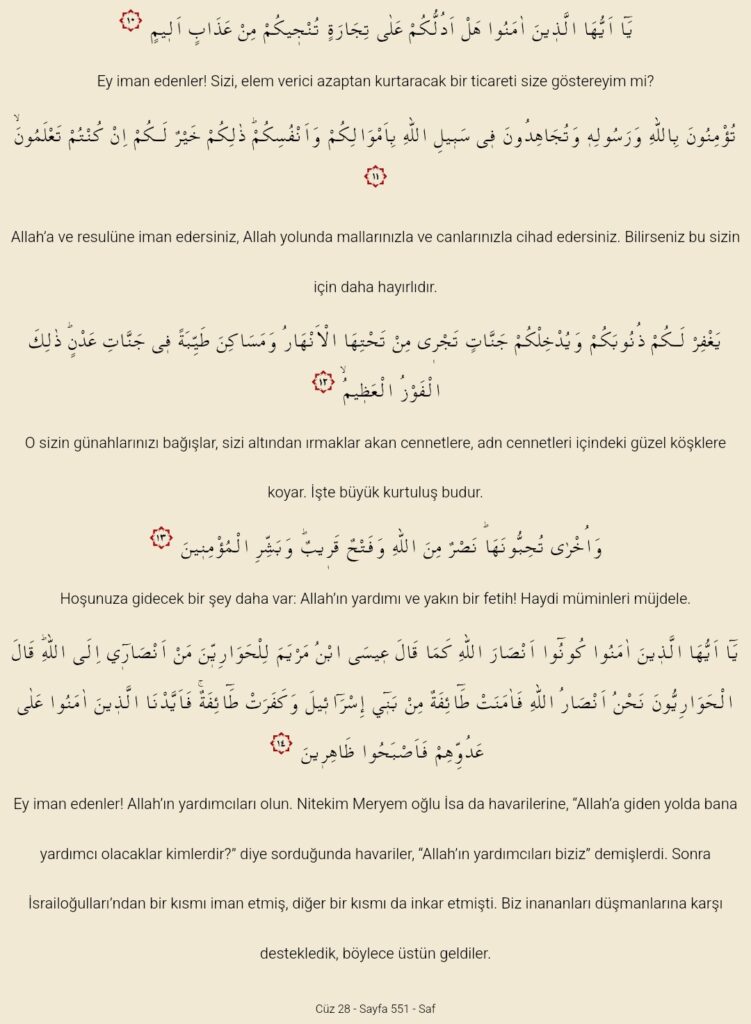 يَٓا اَيُّهَا الَّذٖينَ اٰمَنُوا هَلْ اَدُلُّكُمْ عَلٰى تِجَارَةٍ تُنْجٖيكُمْ مِنْ عَذَابٍ اَلٖيمٍ ١٠
Ey iman edenler! Sizi, elem verici azaptan kurtaracak bir ticareti size göstereyim mi?
تُؤْمِنُونَ بِاللّٰهِ وَرَسُولِهٖ وَتُجَاهِدُونَ فٖي سَبٖيلِ اللّٰهِ بِاَمْوَالِكُمْ وَاَنْفُسِكُمْؕ ذٰلِكُمْ خَيْرٌ لَكُمْ اِنْ كُنْتُمْ تَعْلَمُونَۙ
١١
Allah’a ve resulüne iman edersiniz, Allah yolunda mallarınızla ve canlarınızla cihad edersiniz. Bilirseniz bu sizin
için daha hayırlıdır.
يَغْفِرْ لَكُمْ ذُنُوبَكُمْ وَيُدْخِلْكُمْ جَنَّاتٍ تَجْرٖى مِنْ تَحْتِهَا الْاَنْهَارُ وَمَسَاكِنَ طَيِّبَةً فٖي جَنَّاتِ عَدْنٍؕ ذٰلِكَ
الْفَوْزُ الْعَظٖيمُۙ ١٢
O sizin günahlarınızı bağışlar, sizi altından ırmaklar akan cennetlere, adn cennetleri içindeki güzel köşklere
koyar. İşte büyük kurtuluş budur.
وَاُخْرٰى تُحِبُّونَهَاؕ نَصْرٌ مِنَ اللّٰهِ وَفَتْحٌ قَرٖيبٌؕ وَبَشِّرِ الْمُؤْمِنٖينَ ١٣
Hoşunuza gidecek bir şey daha var: Allah’ın yardımı ve yakın bir fetih! Haydi müminleri müjdele.
يَٓا اَيُّهَا الَّذٖينَ اٰمَنُوا كُونُٓوا اَنْصَارَ اللّٰهِ كَمَا قَالَ عٖيسَى ابْنُ مَرْيَمَ لِلْحَوَارِيّٖنَ مَنْ اَنْصَارٖٓي اِلَى اللّٰهِؕ قَالَ
الْحَوَارِيُّونَ نَحْنُ اَنْصَارُ اللّٰهِ فَاٰمَنَتْ طَٓائِفَةٌ مِنْ بَنٖٓي اِسْرَٓائٖيلَ وَكَفَرَتْ طَٓائِفَةٌۚ فَاَيَّدْنَا الَّذٖينَ اٰمَنُوا عَلٰى
عَدُوِّهِمْ فَاَصْبَحُوا ظَاهِرٖينَ ١٤
Ey iman edenler! Allah’ın yardımcıları olun. Nitekim Meryem oğlu İsa da havarilerine, “Allah’a giden yolda bana
yardımcı olacaklar kimlerdir?” diye sorduğunda havariler, “Allah’ın yardımcıları biziz” demişlerdi. Sonra
İsrailoğulları’ndan bir kısmı iman etmiş, diğer bir kısmı da inkar etmişti. Biz inananları düşmanlarına karşı
destekledik, böylece üstün geldiler.
Cüz 28 - Sayfa 551 - Saf